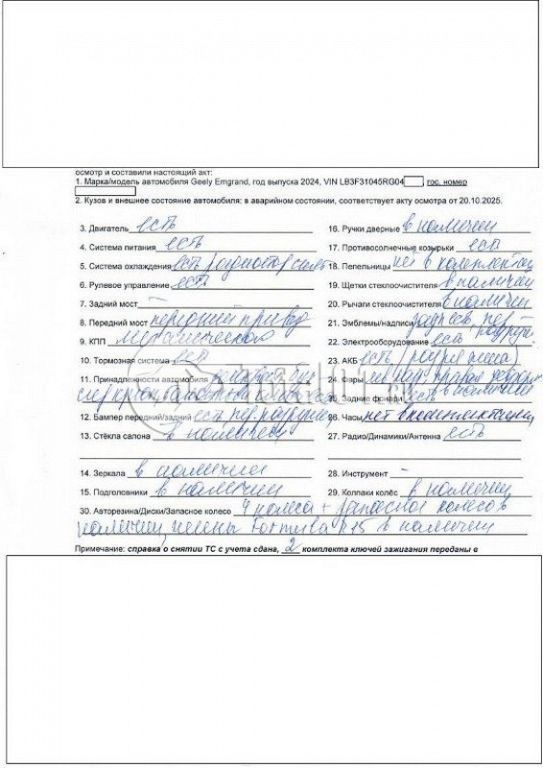 осмотр и составили настоящий акт:
1. Марка/модель автомобиля Geely Emgrand, год выпуска 2024, VIN LB3F31045RG04 гос. номер
2. Кузов и внешнее состояние автомобиля: в аварийном состоянии, соответствует акту осмотра от 20.10.2025.
3. Двигатель есть
4. Система питания есть
5. Система охлаждения есть
6. Рулевое управление есть
7. Задний мост
8. Передний мост передний привод
9. КПП механическая
10. Тормозная система есть
11. Принадлежности автомобиля
12. Бампер передний/задний есть
13. Стёкла салона в наличии
14. Зеркала в наличии
15. Подголовники в наличии
16. Ручки дверные в наличии
17. Противосолнечные козырьки есть
18. Пепельницы нет в комплектации
19. Щетки стеклоочистителя в наличии
20. Рычаги стеклоочистителя в наличии
21. Эмблемы/надписи
22. Электрооборудование есть
23. АКБ есть
24. Фары правая
25. Задние фонари в наличии
26. Часы нет в комплектации
27. Радио/Динамики/Антенна есть
28. Инструмент –
29. Колпаки колёс в наличии
30. Авторезина/Диски/Запасное колесо 4 колеса + запасное колесо в
наличии R15 в наличии
Примечание: справка о снятии ТС с учета сдана, 2 комплекта ключей зажигания переданы в